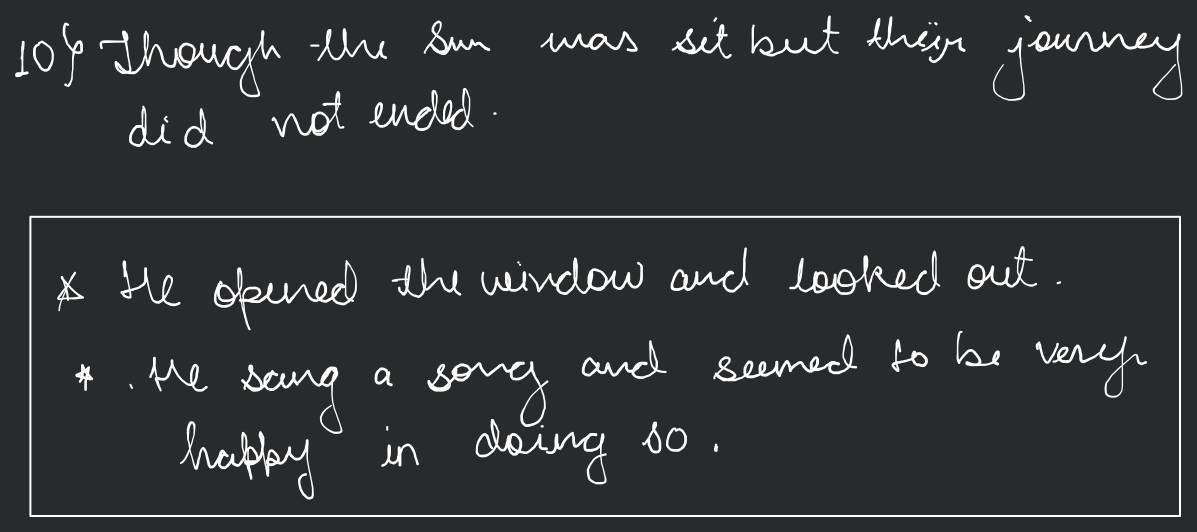 10} Though the Sun was sit but their journey
did not ended.
* He opened the window and looked out.
* . He sang a song and seemed to be very
happy in doing so.